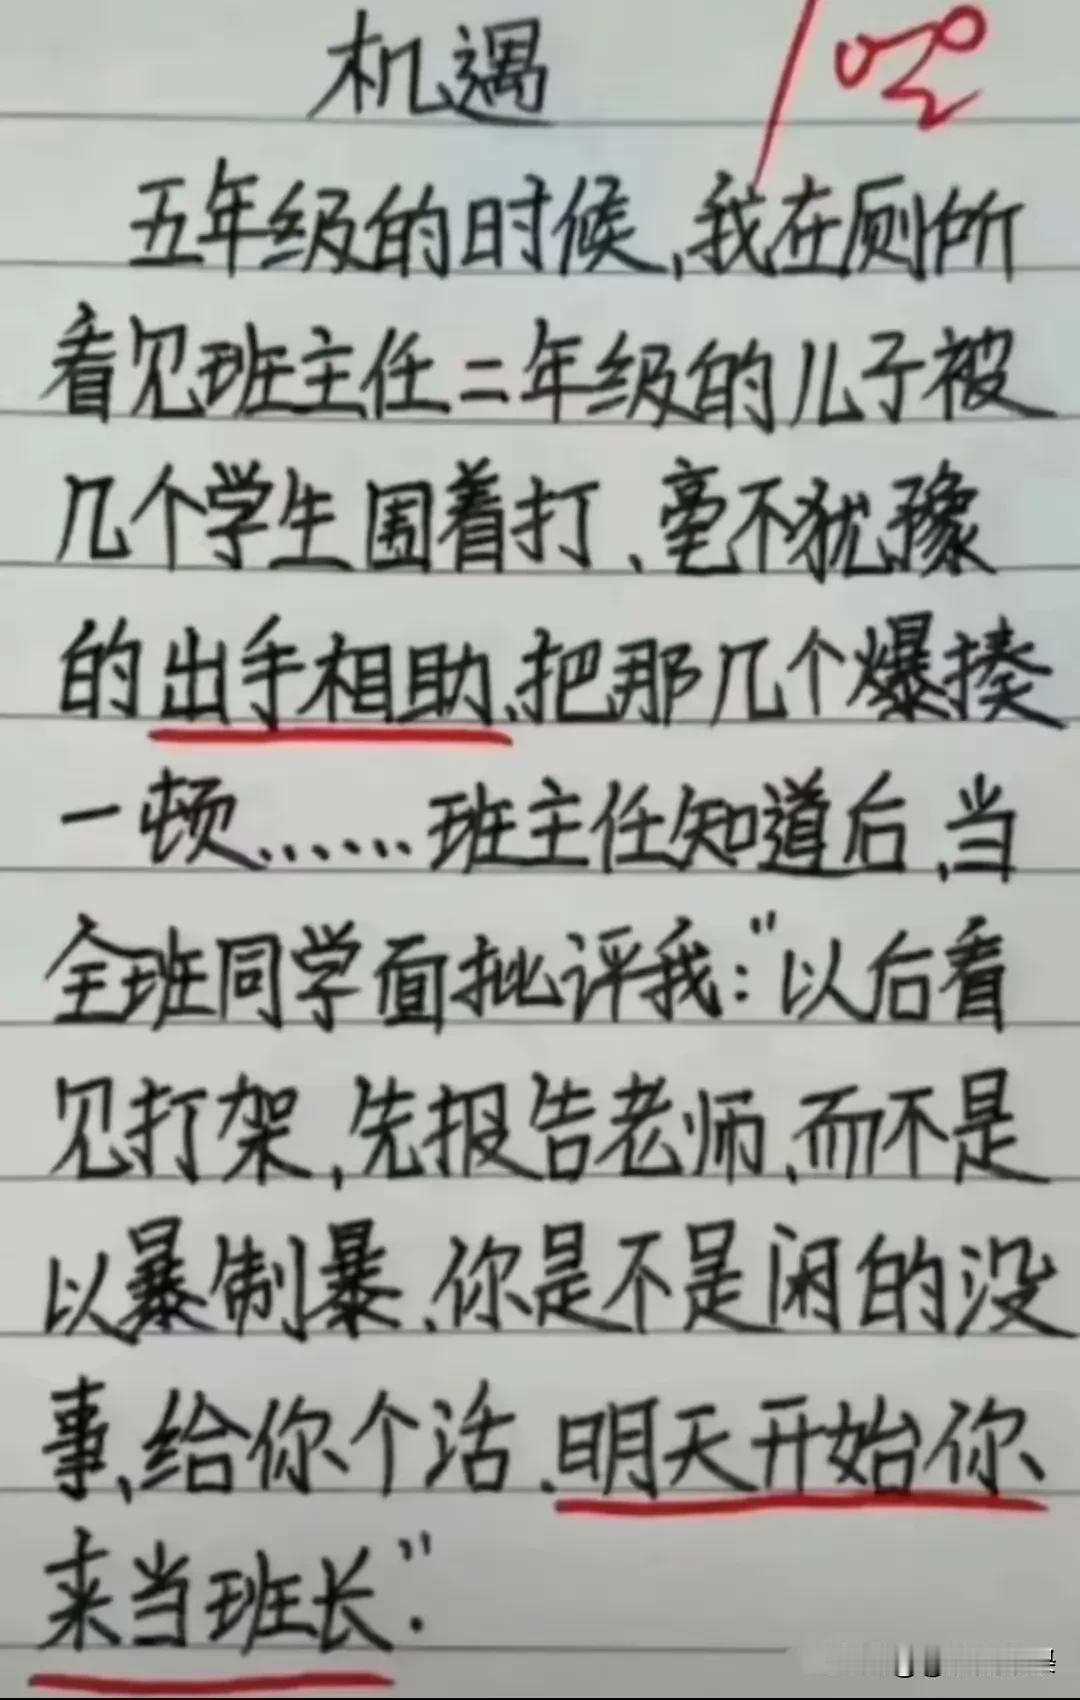 机遇 100
五年级的时候,我在厕所
看见班主任二年级的儿子被
几个学生围着打、毫不犹豫
的出手相助、把那几个爆揍
一顿……班主任知道后、当
全班同学面批评我:"以后看
见打架,先报告老师、而不是
以暴制暴、你是不是闲的没
事、给你个活.明天开始你
来当班长".